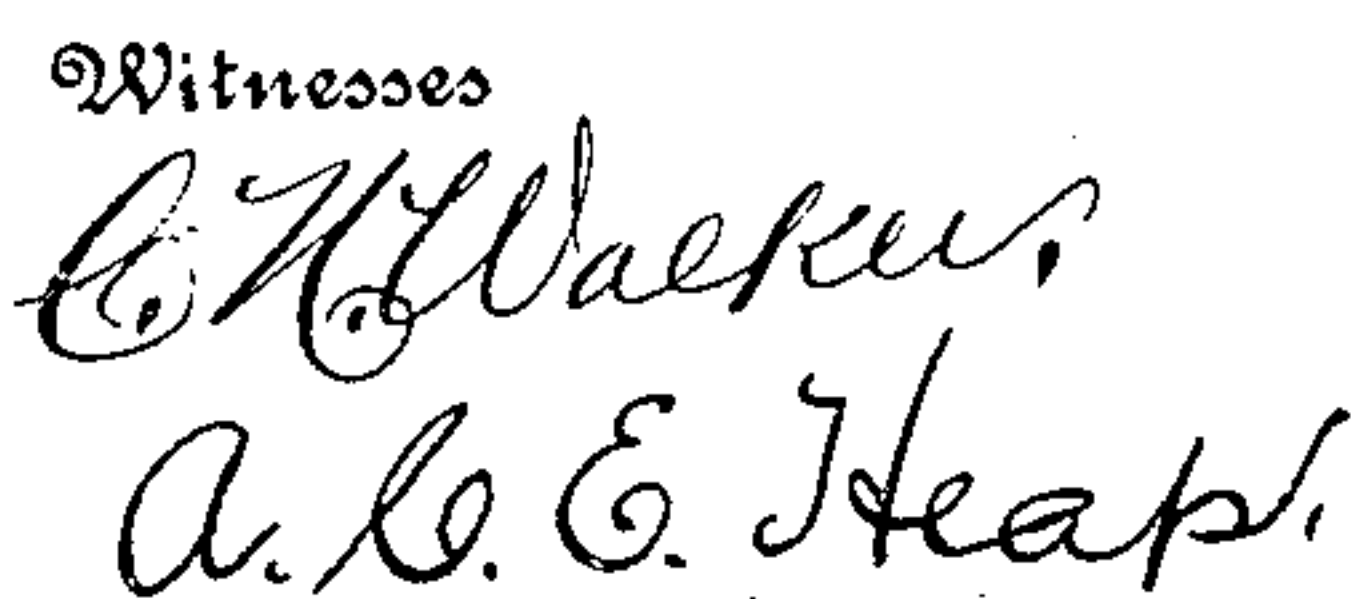 Witnesses
C. N. Walker.
A. C. E. Heap.